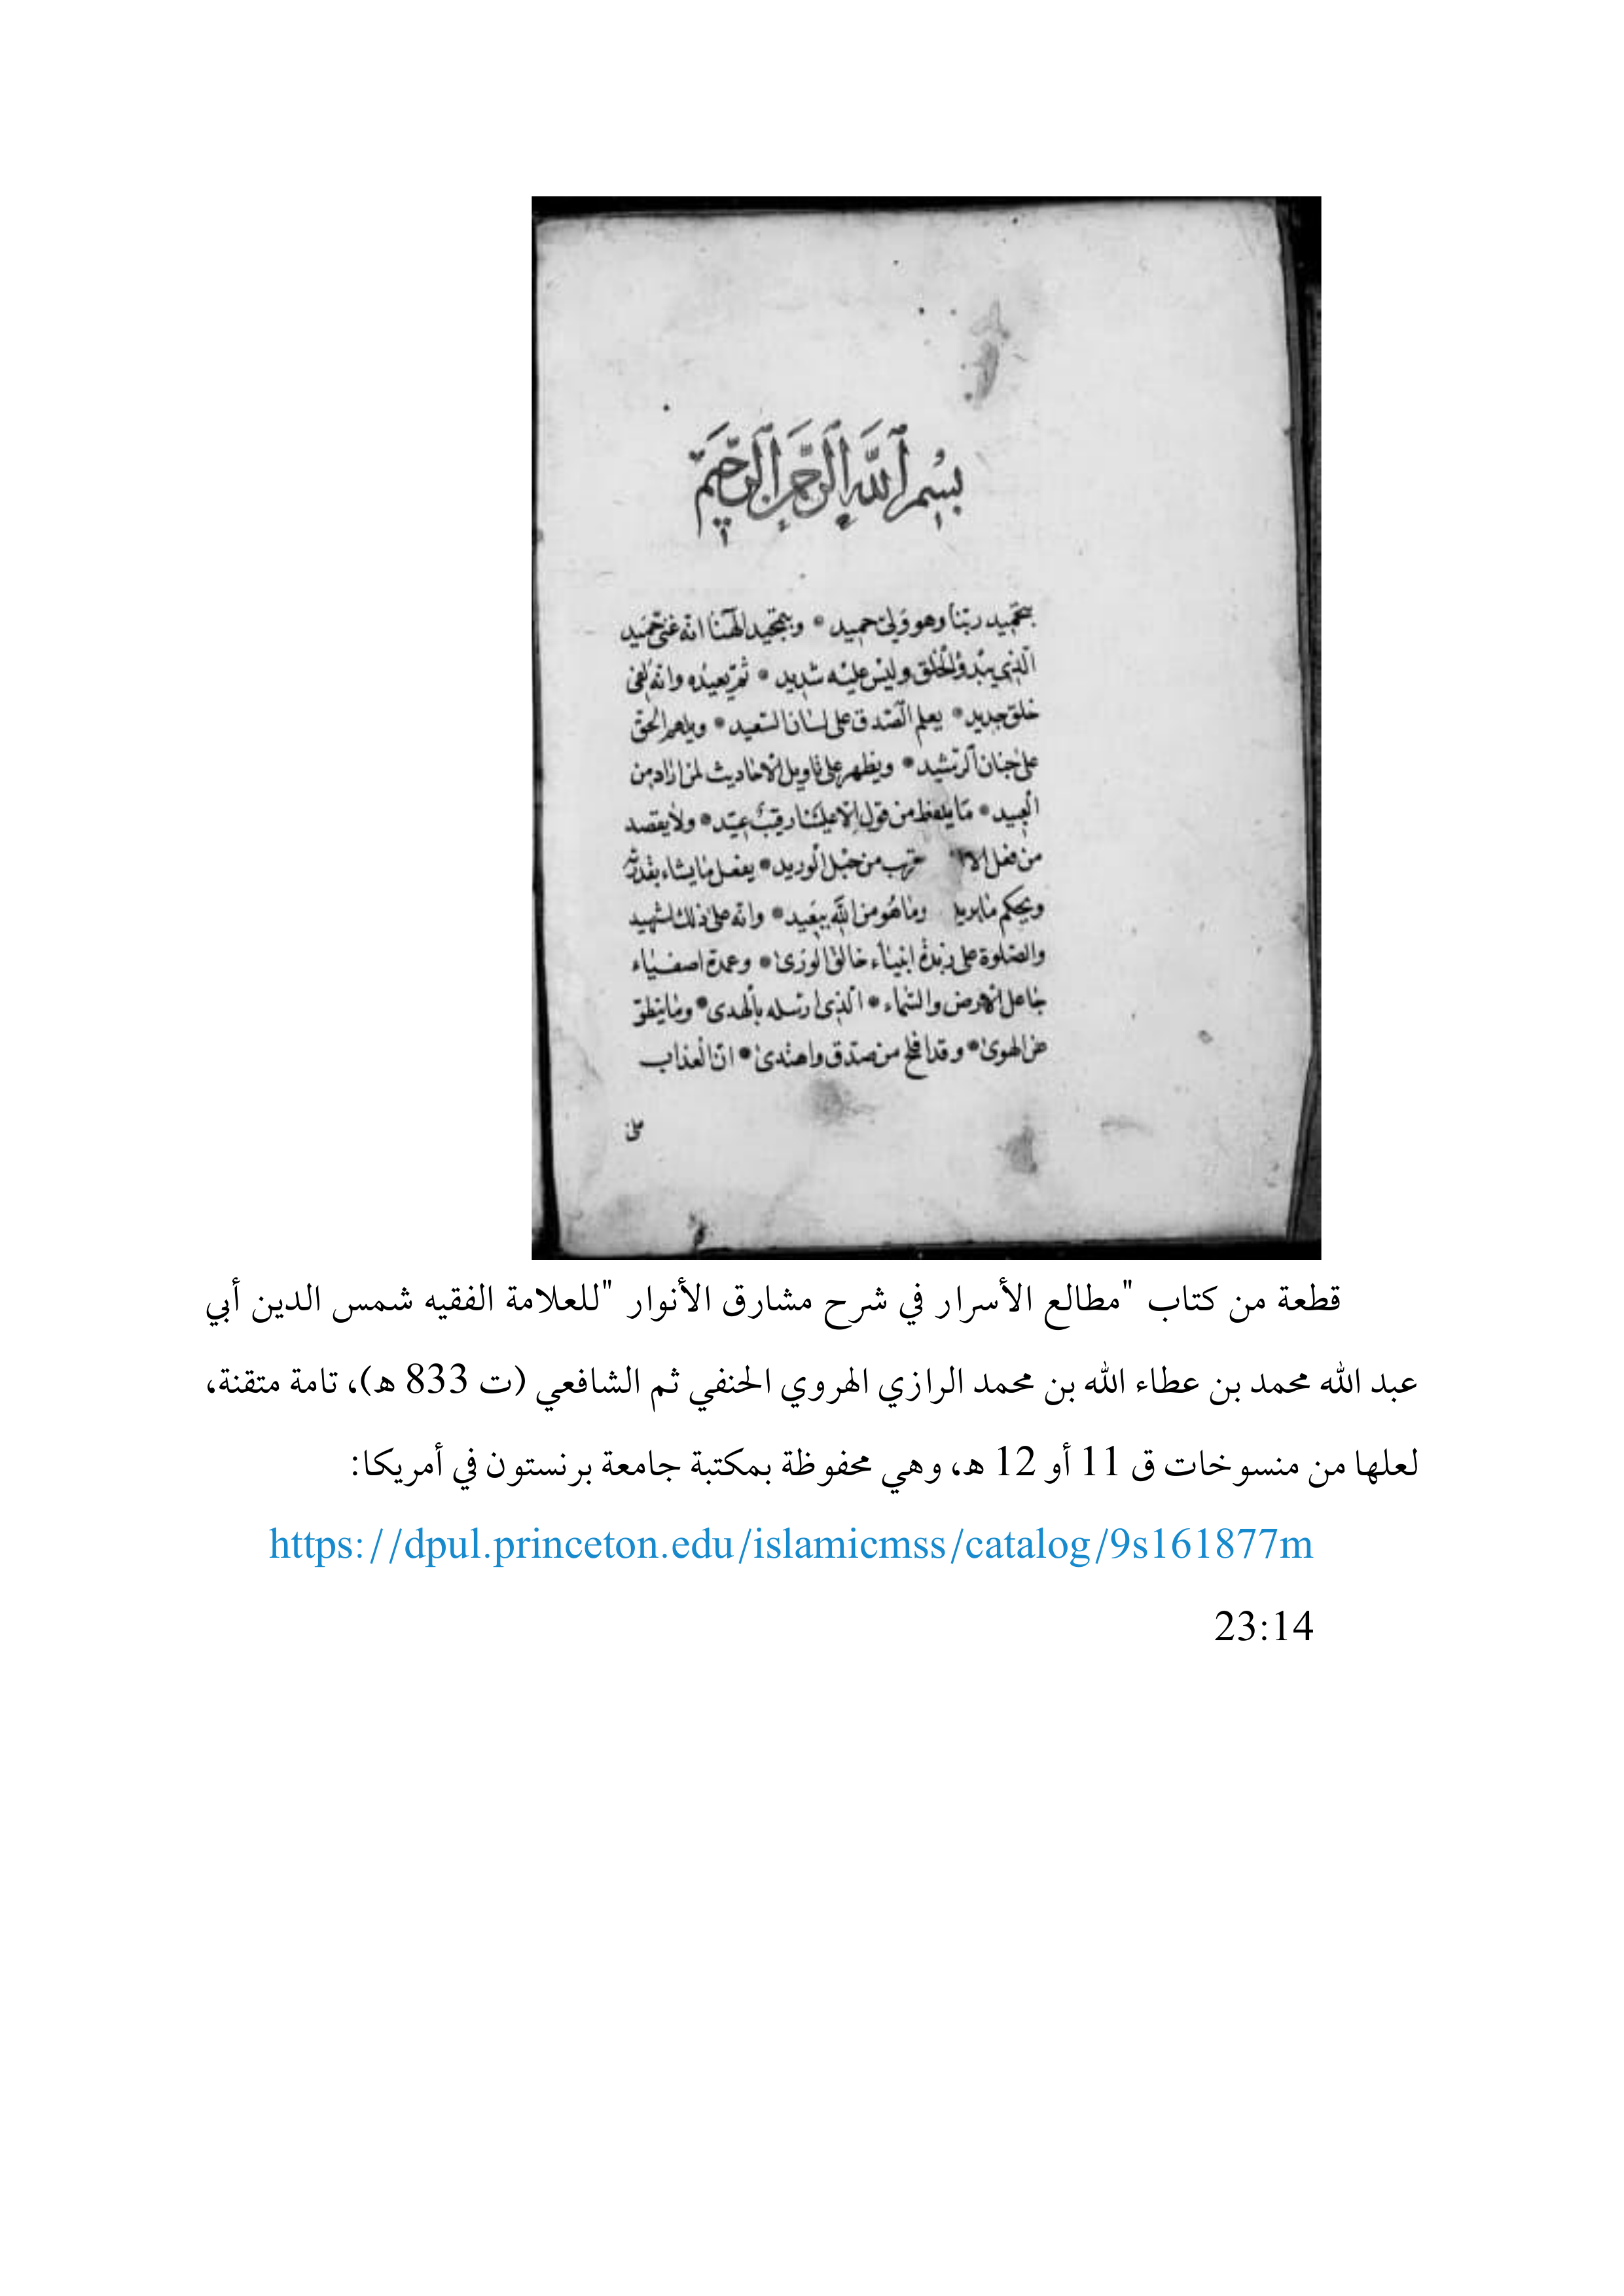 بسم الله الرحمن الرحيم
بتحميد ربنا وهو ولي حميد * وبتمجيد الهنا انه غني حميد
الذي يبدؤ الخلق وليس عليه شديد * ثم يعيده وانه لفي
خلق جديد * يعلم الصدق على لسان السعيد * ويلهم الحق
على جنان الرشيد * ويظهر على تاويل الاحاديث لمن اراد من
العبيد * ما يلفظ من قول الا علينا رقيب عتيد * ولا يقصد
من فعل الا من حبل الوريد * يفعل ما يشاء بقدرته
ويحكم ما يريد وما هو من الله ببعيد * وانه على ذلك لشهيد
والصلوة على زبدة انبياء خالق الورى * وعمدة اصفياء
جاعل الارض والسماء * الذي ارسله بالهدى * وما ينطق
عن الهوى * وقد افلح من صدق واهتدى * ان العذاب
على
قطعة من كتاب "مطالع الأسرار في شرح مشارق الأنوار "للعلامة الفقيه شمس الدين أبي
عبد الله محمد بن عطاء الله بن محمد الرازي الهروي الحنفي ثم الشافعي (ت 833 ه)، تامة متقنة،
لعلها من منسوخات ق 11 أو 12 ه، وهي محفوظة بمكتبة جامعة برنستون في أمريكا:
https://dpul.princeton.edu/islamicmss/catalog/9s161877m
23:14